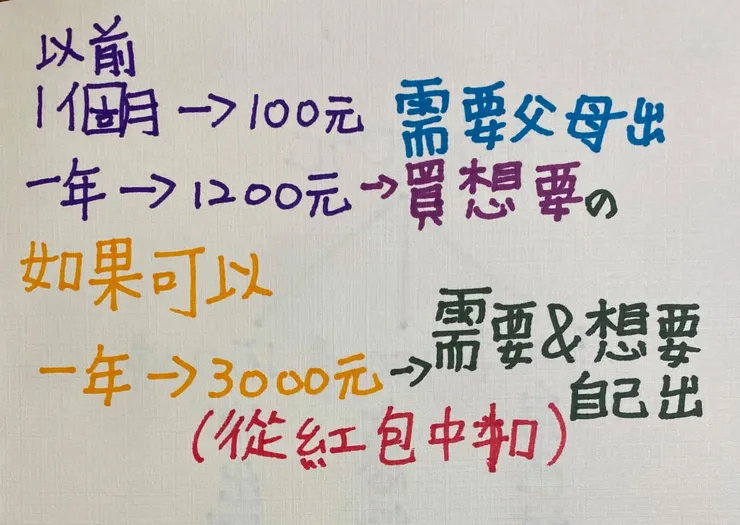 以前
1個月→100元 需要父母出
一年→1200元→買想要の
如果可以
一年→3000元→需要&想要
自己出
(從紅包中扣)